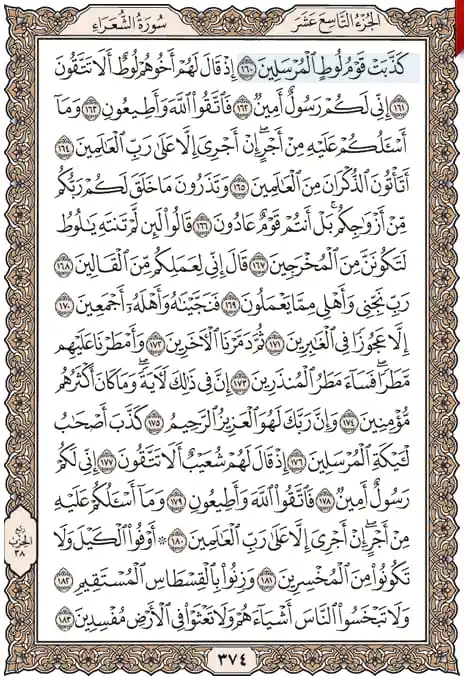 الجُزْءُ التَّاسِعَ عَشَرَ
سُورَةُ الشُّعَرَاءِ
كَذَّبَتْ قَوْمُ لُوطٍ ٱلْمُرْسَلِينَ ١٦٠ إِذْ قَالَ لَهُمْ أَخُوهُمْ لُوطٌ أَلَا تَتَّقُونَ
١٦١ إِنِّي لَكُمْ رَسُولٌ أَمِينٌ ١٦٢ فَٱتَّقُوا۟ ٱللَّهَ وَأَطِيعُونِ ١٦٣ وَمَآ
أَسْـَٔلُكُمْ عَلَيْهِ مِنْ أَجْرٍ ۖ إِنْ أَجْرِىَ إِلَّا عَلَىٰ رَبِّ ٱلْعَـٰلَمِينَ ١٦٤
أَتَأْتُونَ ٱلذُّكْرَانَ مِنَ ٱلْعَـٰلَمِينَ ١٦٥ وَتَذَرُونَ مَا خَلَقَ لَكُمْ رَبُّكُم
مِّنْ أَزْوَٰجِكُم ۚ بَلْ أَنتُمْ قَوْمٌ عَادُونَ ١٦٦ قَالُوا۟ لَئِن لَّمْ تَنتَهِ يَـٰلُوطُ
لَتَكُونَنَّ مِنَ ٱلْمُخْرَجِينَ ١٦٧ قَالَ إِنِّي لِعَمَلِكُم مِّنَ ٱلْقَالِينَ ١٦٨
رَبِّ نَجِّنِى وَأَهْلِى مِمَّا يَعْمَلُونَ ١٦٩ فَنَجَّيْنَـٰهُ وَأَهْلَهُۥٓ أَجْمَعِينَ ١٧٠
إِلَّا عَجُوزًا فِى ٱلْغَـٰبِرِينَ ١٧١ ثُمَّ دَمَّرْنَا ٱلْـَٔاخَرِينَ ١٧٢ وَأَمْطَرْنَا عَلَيْهِم
مَّطَرًا ۖ فَسَآءَ مَطَرُ ٱلْمُنذَرِينَ ١٧٣ إِنَّ فِى ذَٰلِكَ لَـَٔايَةً ۖ وَمَا كَانَ أَكْثَرُهُم
مُّؤْمِنِينَ ١٧٤ وَإِنَّ رَبَّكَ لَهُوَ ٱلْعَزِيزُ ٱلرَّحِيمُ ١٧٥ كَذَّبَ أَصْحَـٰبُ
لْـَٔيْكَةِ ٱلْمُرْسَلِينَ ١٧٦ إِذْ قَالَ لَهُمْ شُعَيْبٌ أَلَا تَتَّقُونَ ١٧٧ إِنِّي لَكُمْ
رَسُولٌ أَمِينٌ ١٧٨ فَٱتَّقُوا۟ ٱللَّهَ وَأَطِيعُونِ ١٧٩ وَمَآ أَسْـَٔلُكُمْ عَلَيْهِ
مِنْ أَجْرٍ ۖ إِنْ أَجْرِىَ إِلَّا عَلَىٰ رَبِّ ٱلْعَـٰلَمِينَ ١٨٠ ۞ أَوْفُوا۟ ٱلْكَيْلَ وَلَا
تَكُونُوا۟ مِنَ ٱلْمُخْسِرِينَ ١٨١ وَزِنُوا۟ بِٱلْقِسْطَاسِ ٱلْمُسْتَقِيمِ ١٨٢
وَلَا تَبْخَسُوا۟ ٱلنَّاسَ أَشْيَآءَهُمْ وَلَا تَعْثَوْا۟ فِى ٱلْأَرْضِ مُفْسِدِينَ ١٨٣
ربع
الحزب
٣٨
٣٧٤